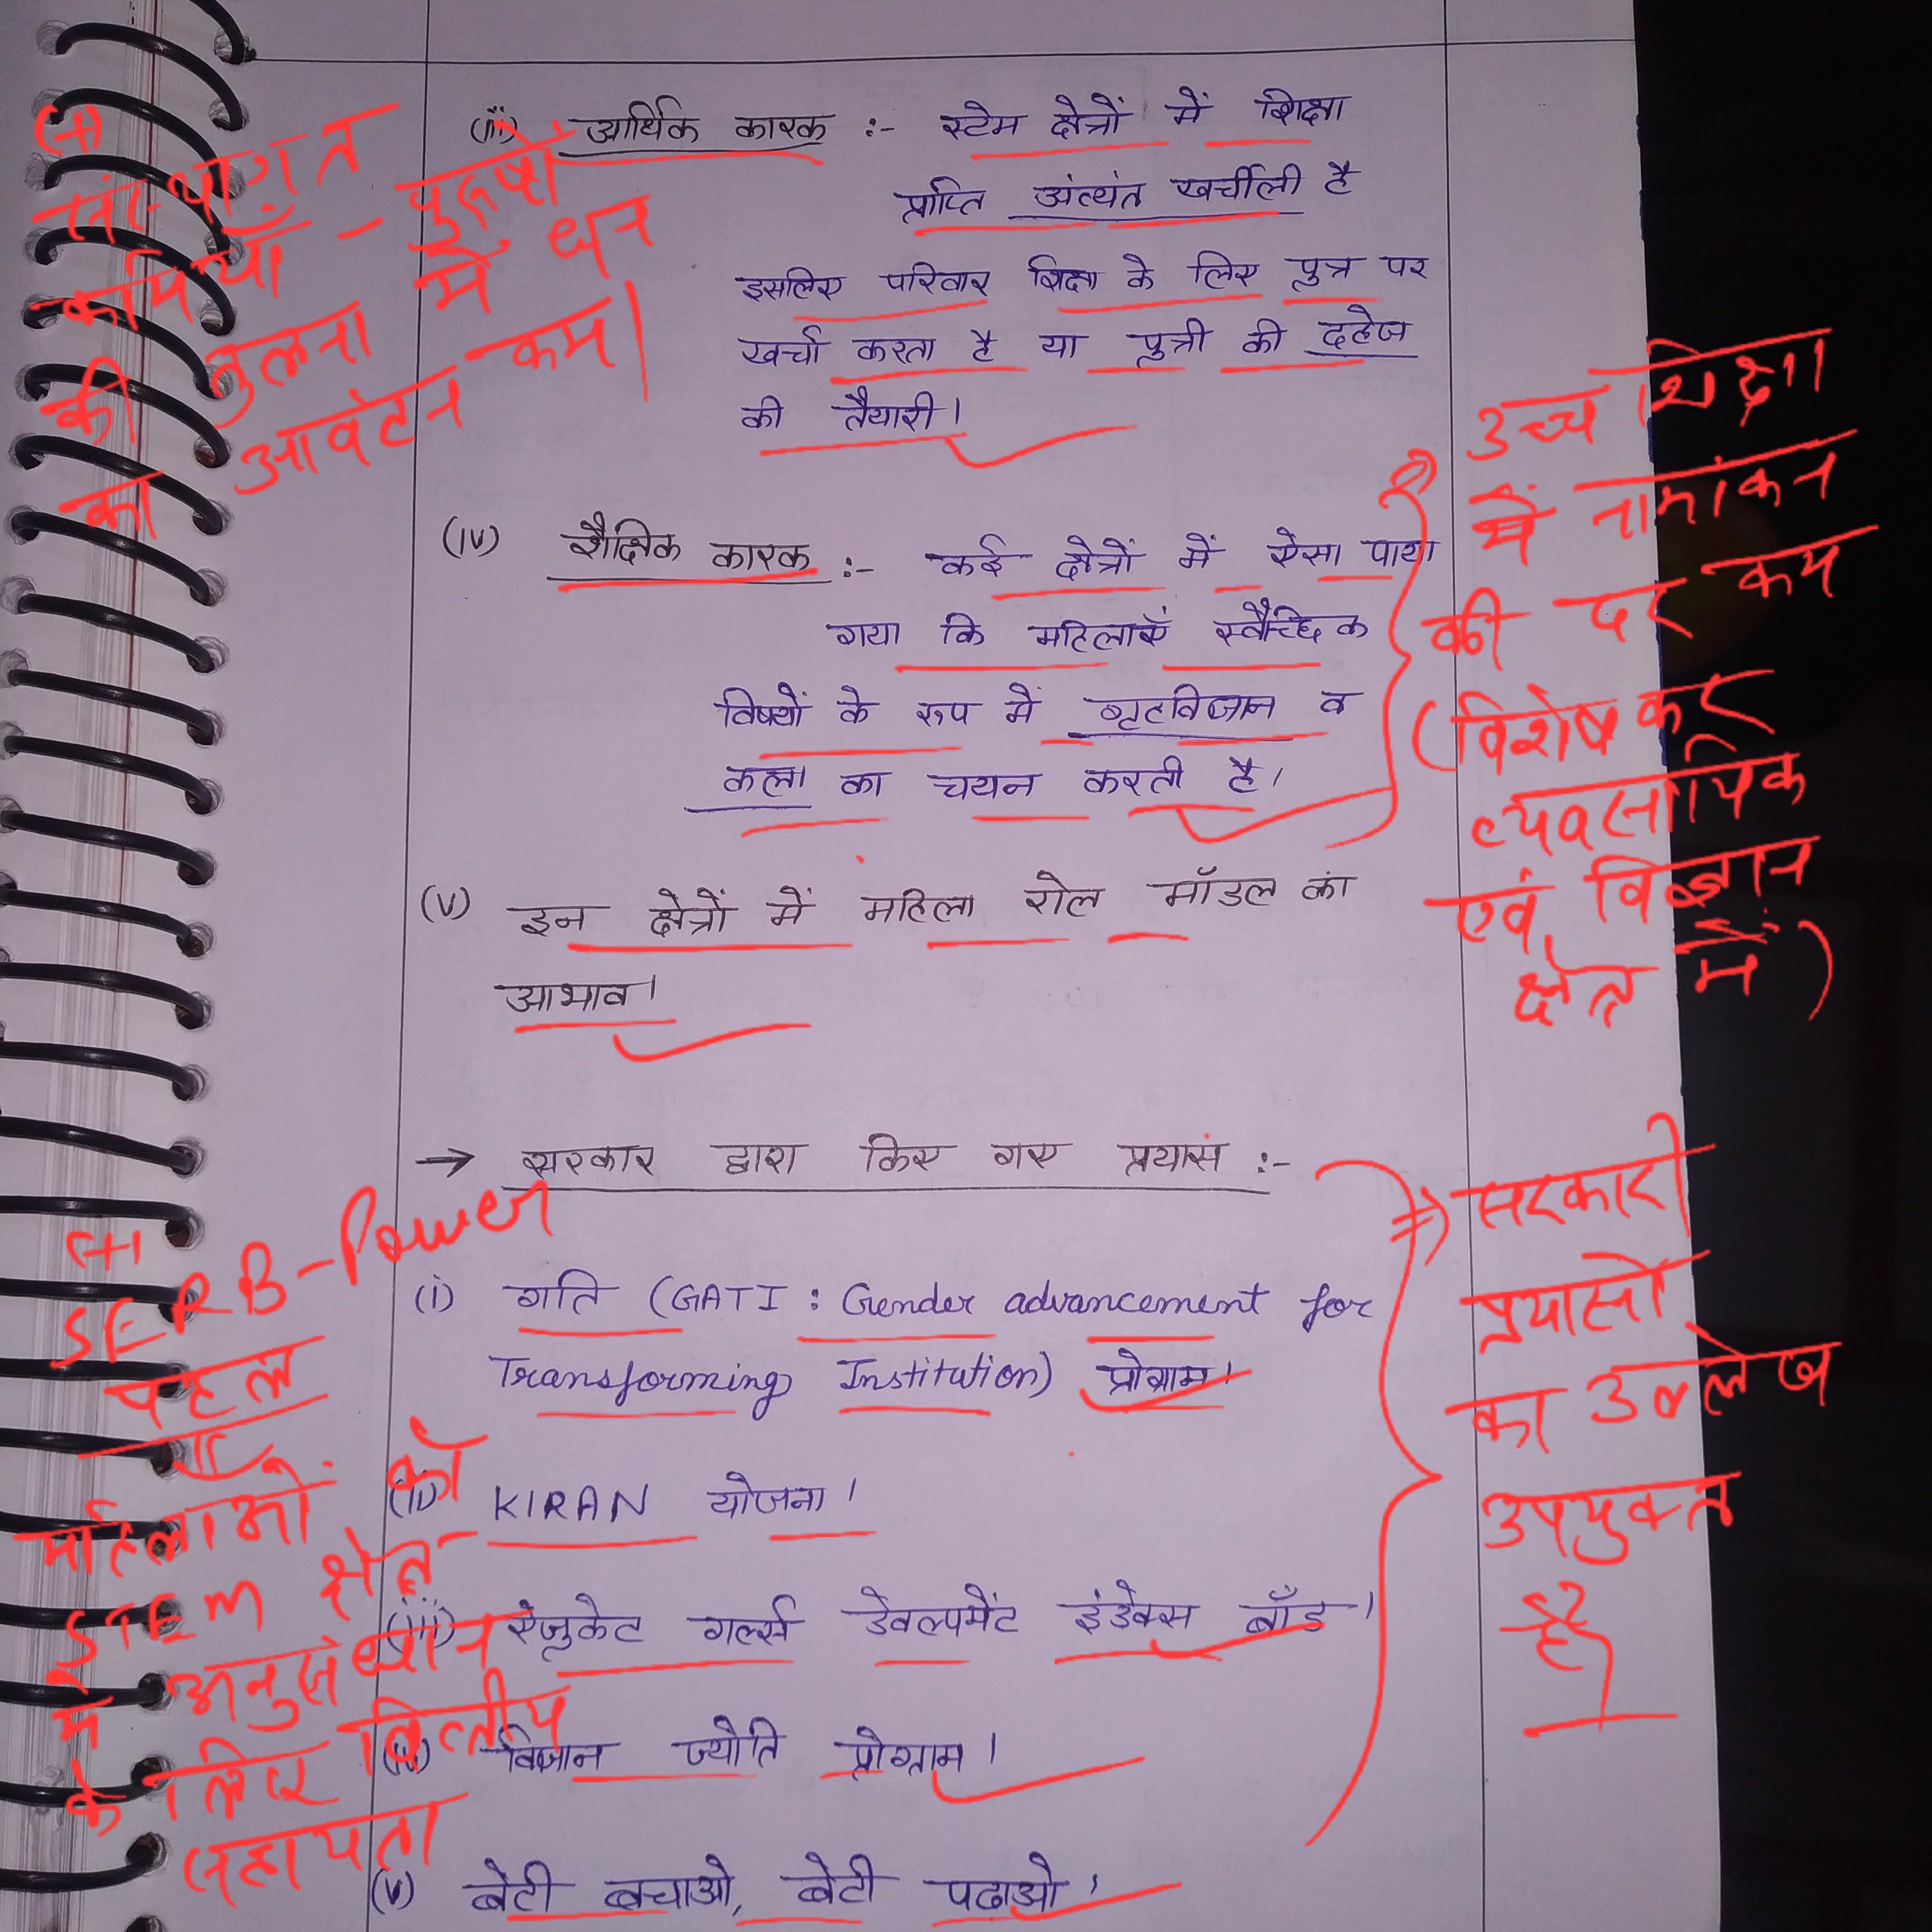 (iii) आर्थिक कारक :- स्टेम क्षेत्रों में शिक्षा
प्राप्ति अंत्यंत खर्चीली है
इसलिए परिवार शिक्षा के लिए पुत्र पर
खर्चा करता है या पुत्री की दहेज
की तैयारी।
(iv) शैक्षिक कारक :- कई क्षेत्रों में ऐसा पाया
गया कि महिलाएँ स्वैच्छिक
विषयों के रूप में गृहविज्ञान व
कला का चयन करती है।
(v) इन क्षेत्रों में महिला रोल मॉडल का
आभाव।
→ सरकार द्वारा किए गए प्रयास :-
(i) गति (GATI : Gender advancement for
Transforming Institution) प्रोग्राम।
(ii) KIRAN योजना।
(iii) एजुकेट गर्ल्स डेवलपमेंट इंडेक्स बॉंड।
(iv) विज्ञान ज्योति प्रोग्राम।
(v) बेटी बचाओ, बेटी पढाओ।
(+)
संस्थागत
कमियाँ - पुरूषों
की तुलना में धन
का आवंटन कम।
उच्च शिक्षा
में नामांकन
की दर कम
(विशेषकर
व्यवसायिक
एवं विज्ञान
क्षेत्र में)
(+)
SERB-Power
पहल
महिलाओं को
STEM क्षेत्र
में अनुसंधान
के लिए वित्तीय
सहायता
⇒ सरकारी
प्रयासों
का उल्लेख
उपयुक्त
है